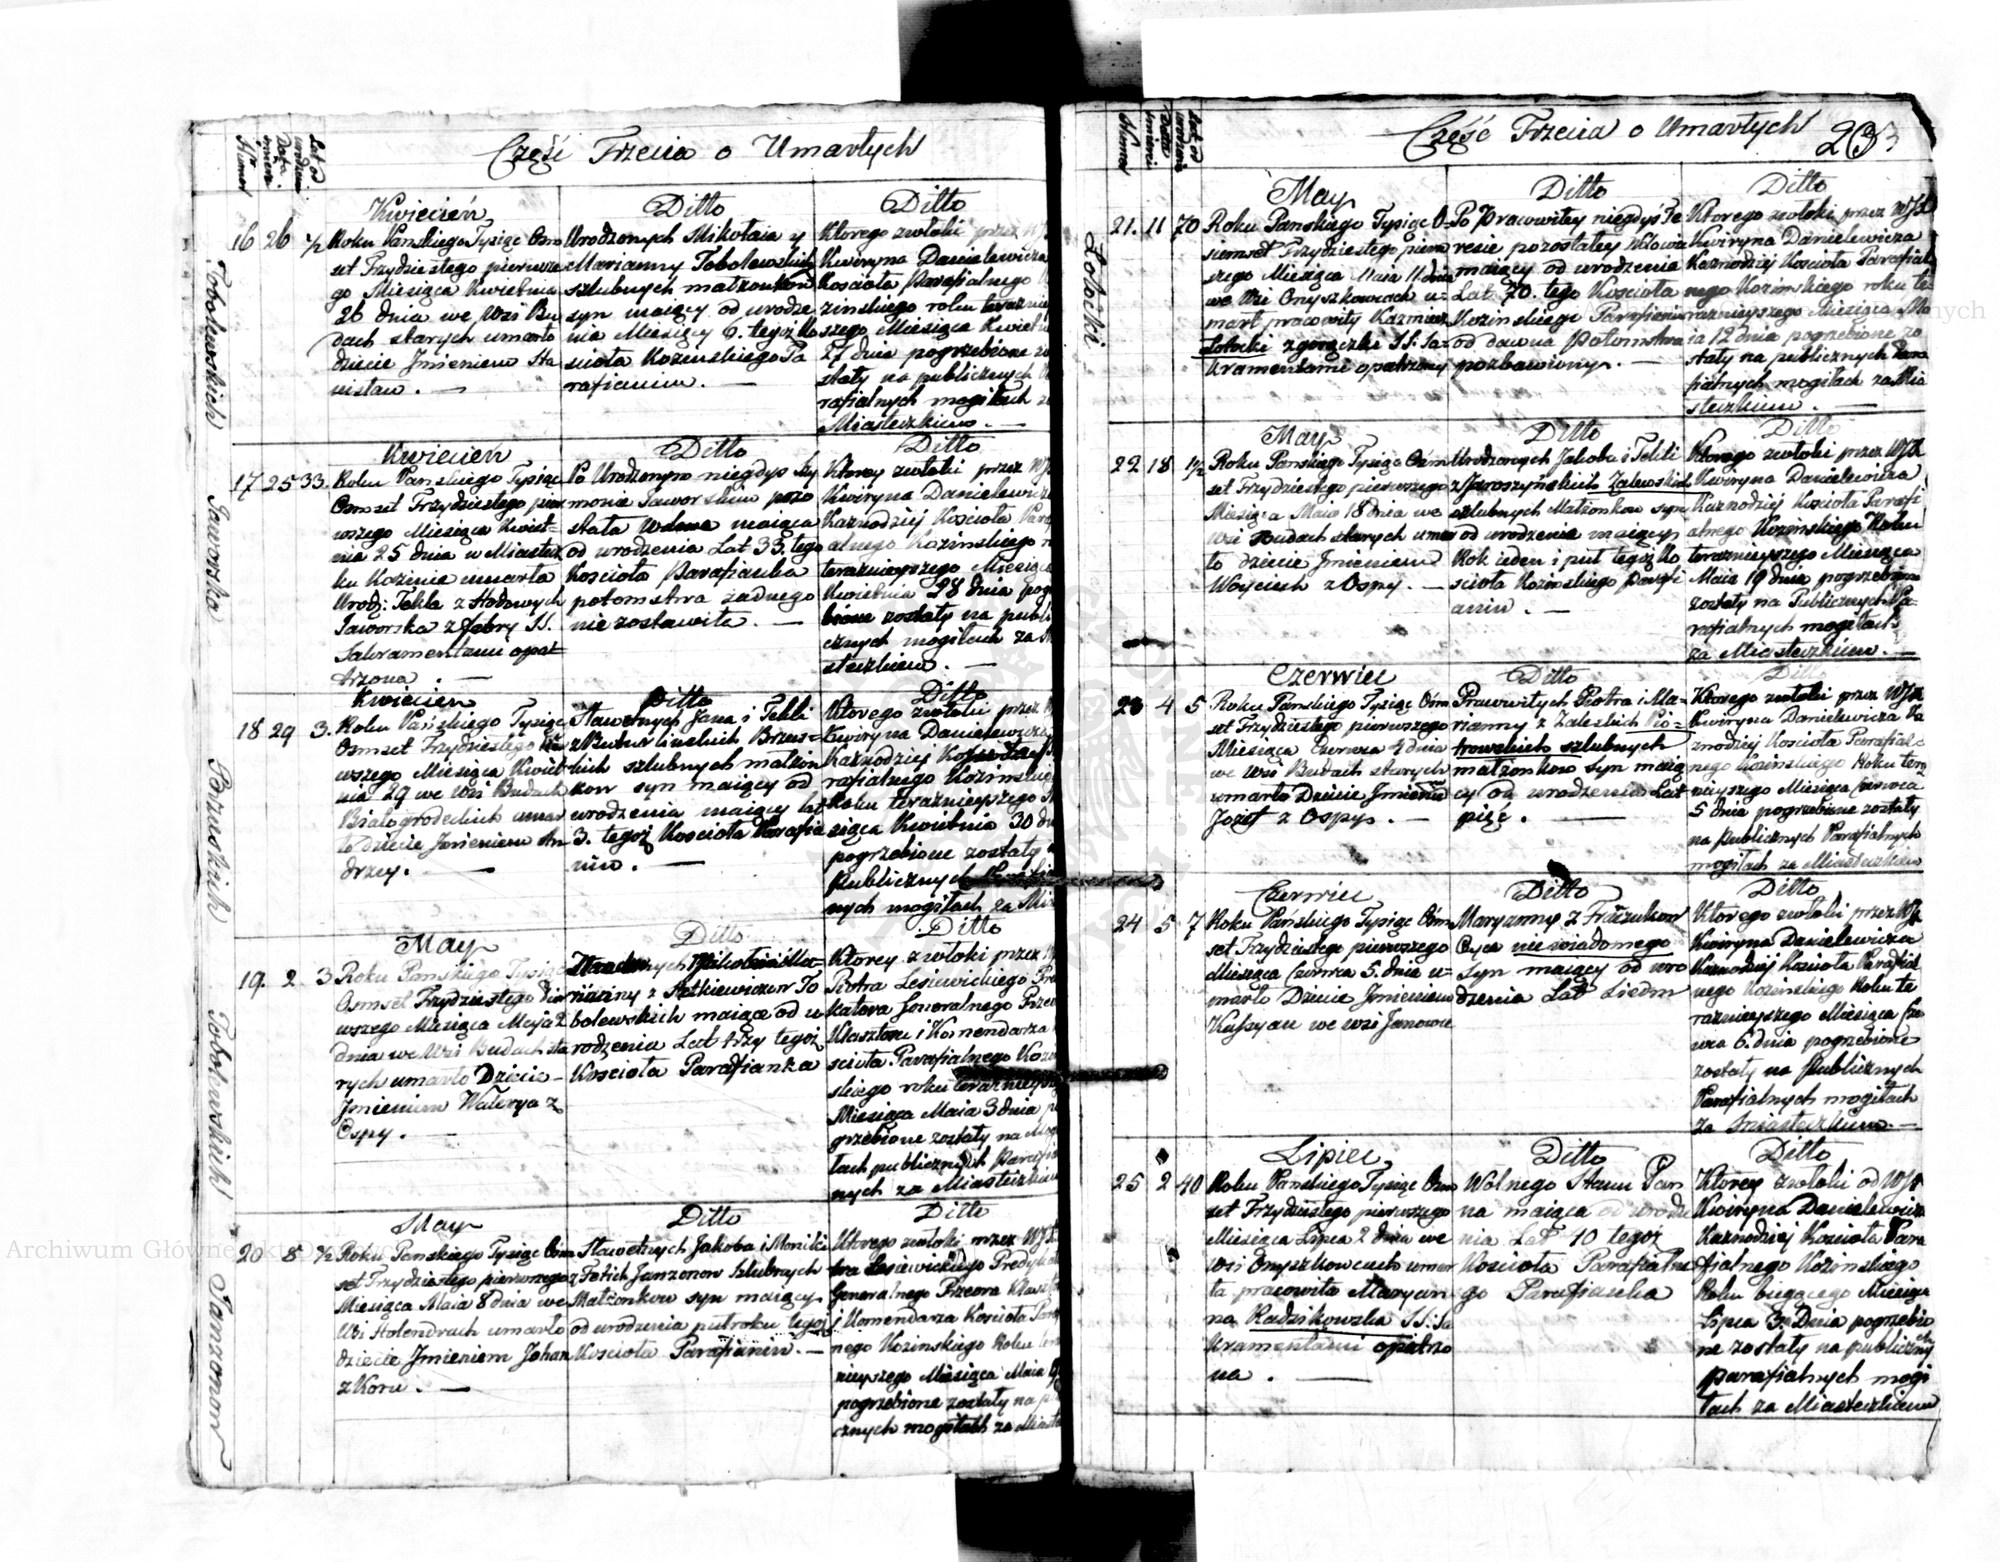 Część Trzecia o Umarłych
Numer
Data śmierci
Lat od urodzenia
Tobolewskich
Jaworska
Brzuskich
Tobolewskich
Janzonow
16 26 ½
Kwiecień
Roku Pańskiego Tysiąc Osm
set Trzydziestego pierwsze
go Miesiąca Kwietnia
26 dnia we Wsi Bu
dach starych umarło
dziecie Jmieniem Sta
nisław.
Ditto
Urodzonych Mikołaia y
Marianny Tobolewskich
szlubnych małżonkow
syn maiący od urodze
nia Miesięcy 6. tegoż Ko
scioła Kozinskiego Pa
rafianin.
Ditto
Ktorego zwłoki przez
Kwiryna Danielewicza
Kościoła Parafialnego
zinskiego roku teraznie
szego Miesiąca Kwietn
27 dnia pogrzebione zo
stały na publicznych
rafialnych mogiłach
Miasteczkiem.
17 25 33.
Kwiecień
Roku Pańskiego Tysiąc
Osmset Trzydziestego pier
wszego Miesiąca Kwiet
nia 25 dnia w Miastecz
ku Kozinie umarła
Urodz: Tekla z
Jaworska z febry SS.
Sakramentami opa
trzona.
Ditto
Po Urodzonym niegdys Szy
monie Jaworskim pozo
stała Wdowa maiąca
od urodzenia Lat 33. tego
Kościoła Parafianka
potomstwa żadnego
nie zostawiła.
Ditto
Ktorey zwłoki przez
Kwiryna Danielewicza
Kaznodziej Kościoła Para
alnego Kozinskiego
teraznieyszego Miesiąca
Kwietnia 28 dnia pogrze
bione zostały na publi
cznych mogiłach za
steczkiem.
18 29 3.
Kwiecien
Roku Pańskiego Tysiąc
Osmset Trzydziestego pier
wszego Miesiąca Kwiet
nia 29 we Wsi Budach
Białogrodeckich umar
ło dziecie Jmieniem An
drzey.
Ditto
Sławetnych Jana i Tekli
z Brzus
kich szlubnych małżon
kow syn maiący od
urodzenia maiący lat
3. tegoż Kościoła Parafia
nin.
Ditto
Ktorego zwłoki przez
Kwiryna Danielewicza
Kaznodziej Kościoła
rafialnego Kozinskie
Roku teraznieyszego
siąca Kwietnia 30 dn
pogrzebione zostały
publicznych
nych mogiłach za Mi
19. 2 3
May
Roku Pańskiego Tysiąc
Osmset Trzydziestego pier
wszego Miesiąca Maja 2
dnia we Wsi Budach sta
rych umarło Dziecie
Jmieniem Walerya z
Ospy.
Ditto
Urodzonych Mikołaia i Ma
rianny z Petkiewiczow To
bolewskich maiąca od u
rodzenia Lat trzy tegoż
Kościoła Parafianka
Ditto
Ktorey zwłoki przez
Piotra Lesiewickiego Pre
katora Generalnego Przeo
Klasztoru i Komendarza
scioła Parafialnego Kozi
skiego roku teraznieysz
Miesiąca Maia 3 dnia po
grzebione zostały na Mogi
łach publicznych Parafia
nych za Miasteczkiem
20 8 ½
May
Roku Pańskiego Tysiąc Osm
set Trzydziestego pierwszego
Miesiąca Maia 8 dnia we
Wsi Holendrach umarło
dziecie Jmieniem Johan
z Koru.
Ditto
Sławetnych Jakoba i Moniki
z Janzonow szlubnych
Małżonkow syn maiący
od urodzenia pułroku tegoż
Kościoła Parafianin.
Ditto
Ktorego zwłoki przez
tra Lesiewickiego Predyka
Generalnego Przeora Klasz
i Komendarza Kościoła Para
nego Kozinskiego Roku tera
nieyszego Miesiąca Maia 9
pogrzebione zostały na p
cznych mogiłach za Miaste
Część Trzecia o Umarłych
203
Numer
Data śmierci
Lat od urodzenia
Łotocki
21. 11 70
May
Roku Pańskiego Tysiąc O
siemset Trzydziestego pierw
szego Miesiąca Maia 11 dnia
we Wsi Onyszkowcach u
marł pracowity Kazimierz
Łotocki z gorączki SS. Sa
kramentami opatrzony
Ditto
Po Pracowitey niegdyś Te
resie pozostały Wdowiec
maiący od urodzenia
Lat 70. tego Kościoła
Kozinskiego Parafianin
od dawna Potomstwa
pozbawiony.
Ditto
Ktorego zwłoki przez WJX
Kwiryna Danielewicza
Kaznodziej Kościoła Parafial
nego Kozinskiego roku te
raznieyszego Miesiąca Ma
ia 12 dnia pogrzebione zo
stały na publicznych Para
fialnych mogiłach za Mia
steczkiem.
22 18 1½
May
Roku Pańskiego Tysiąc Osm
set Trzydziestego pierwszego
Miesiąca Maia 18 dnia we
Wsi Budach starych umar
ło dziecie Jmieniem
Woyciech z Ospy.
Ditto
Urodzonych Jakoba i Tekli
z Jaroszyńskich Zalewskich
szlubnych Małżonkow syn
od urodzenia maiący
Rok ieden i puł tegoż Ko
scioła Kozinskiego Parafi
anin.
Ditto
Ktorego zwłoki przez WJX
Kwiryna Danielewicza
Kaznodziej Kościoła Parafi
alnego Kozinskiego Roku
teraznieyszego Miesiąca
Maia 19 dnia pogrzebione
zostały na Publicznych Pa
rafialnych mogiłach
za Miasteczkiem.
23 4 5
Czerwiec
Roku Pańskiego Tysiąc Osm
set Trzydziestego pierwszego
Miesiąca Czerwca 4 dnia
we Wsi Budach starych
umarło Dziecie Jmienie
Jozef z Ospy.
Ditto
Pracowitych Piotra i Ma
rianny z Zaleskich Pio
trowskich szlubnych
małżonkow syn maią
cy od urodzenia Lat
pięć.
Ditto
Ktorego zwłoki przez WJX
Kwiryna Danielewicza Ka
znodziej Kościoła Parafial
nego Kozinskiego Roku tera
nieyszego Miesiąca Czerwca
5 dnia pogrzebione zostały
na Publicznych Parafialnych
mogiłach za Miasteczkiem
24 5 7
Czerwiec
Roku Pańskiego Tysiąc Osm
set Trzydziestego pierwszego
Miesiąca Czerwca 5. dnia u
marło Dziecie Jmieniem
Kassyan we wsi Janowce
Ditto
Maryanny z Fraszukow
Oyca niewiadomego
Syn maiący od uro
dzenia Lat Siedm
Ditto
Ktorego zwłoki przez WJX
Kwiryna Danielewicza
Kaznodziej Kościoła Parafial
nego Kozinskiego Roku te
raznieyszego Miesiąca Cze
wca 6. dnia pogrzebione
zostały na Publicznych
Parafialnych mogiłach
za Miasteczkiem.
25 2 40
Lipiec
Roku Pańskiego Tysiąc Osm
set Trzydziestego pierwszego
Miesiąca Lipca 2 dnia we
Wsi Onyszkowcach umar
ła pracowita Maryan
na Radzikowska SS. Sa
kramentami opatrzo
na.
Ditto
Wolnego Stanu Pan
na maiąca od urodze
nia Lat 40 tegoż
Kościoła Parafialne
go Parafianka
Ditto
Ktorey zwłoki od WJX
Kwiryna Danielewicza
Kaznodziej Kościoła Para
fialnego Kozinskiego
Roku biegącego Miesiąca
Lipca 3. Dnia pogrzebio
ne zostały na publicznych
parafialnych mogi
łach za Miasteczkiem
Archiwum Główne Akt Dawnych